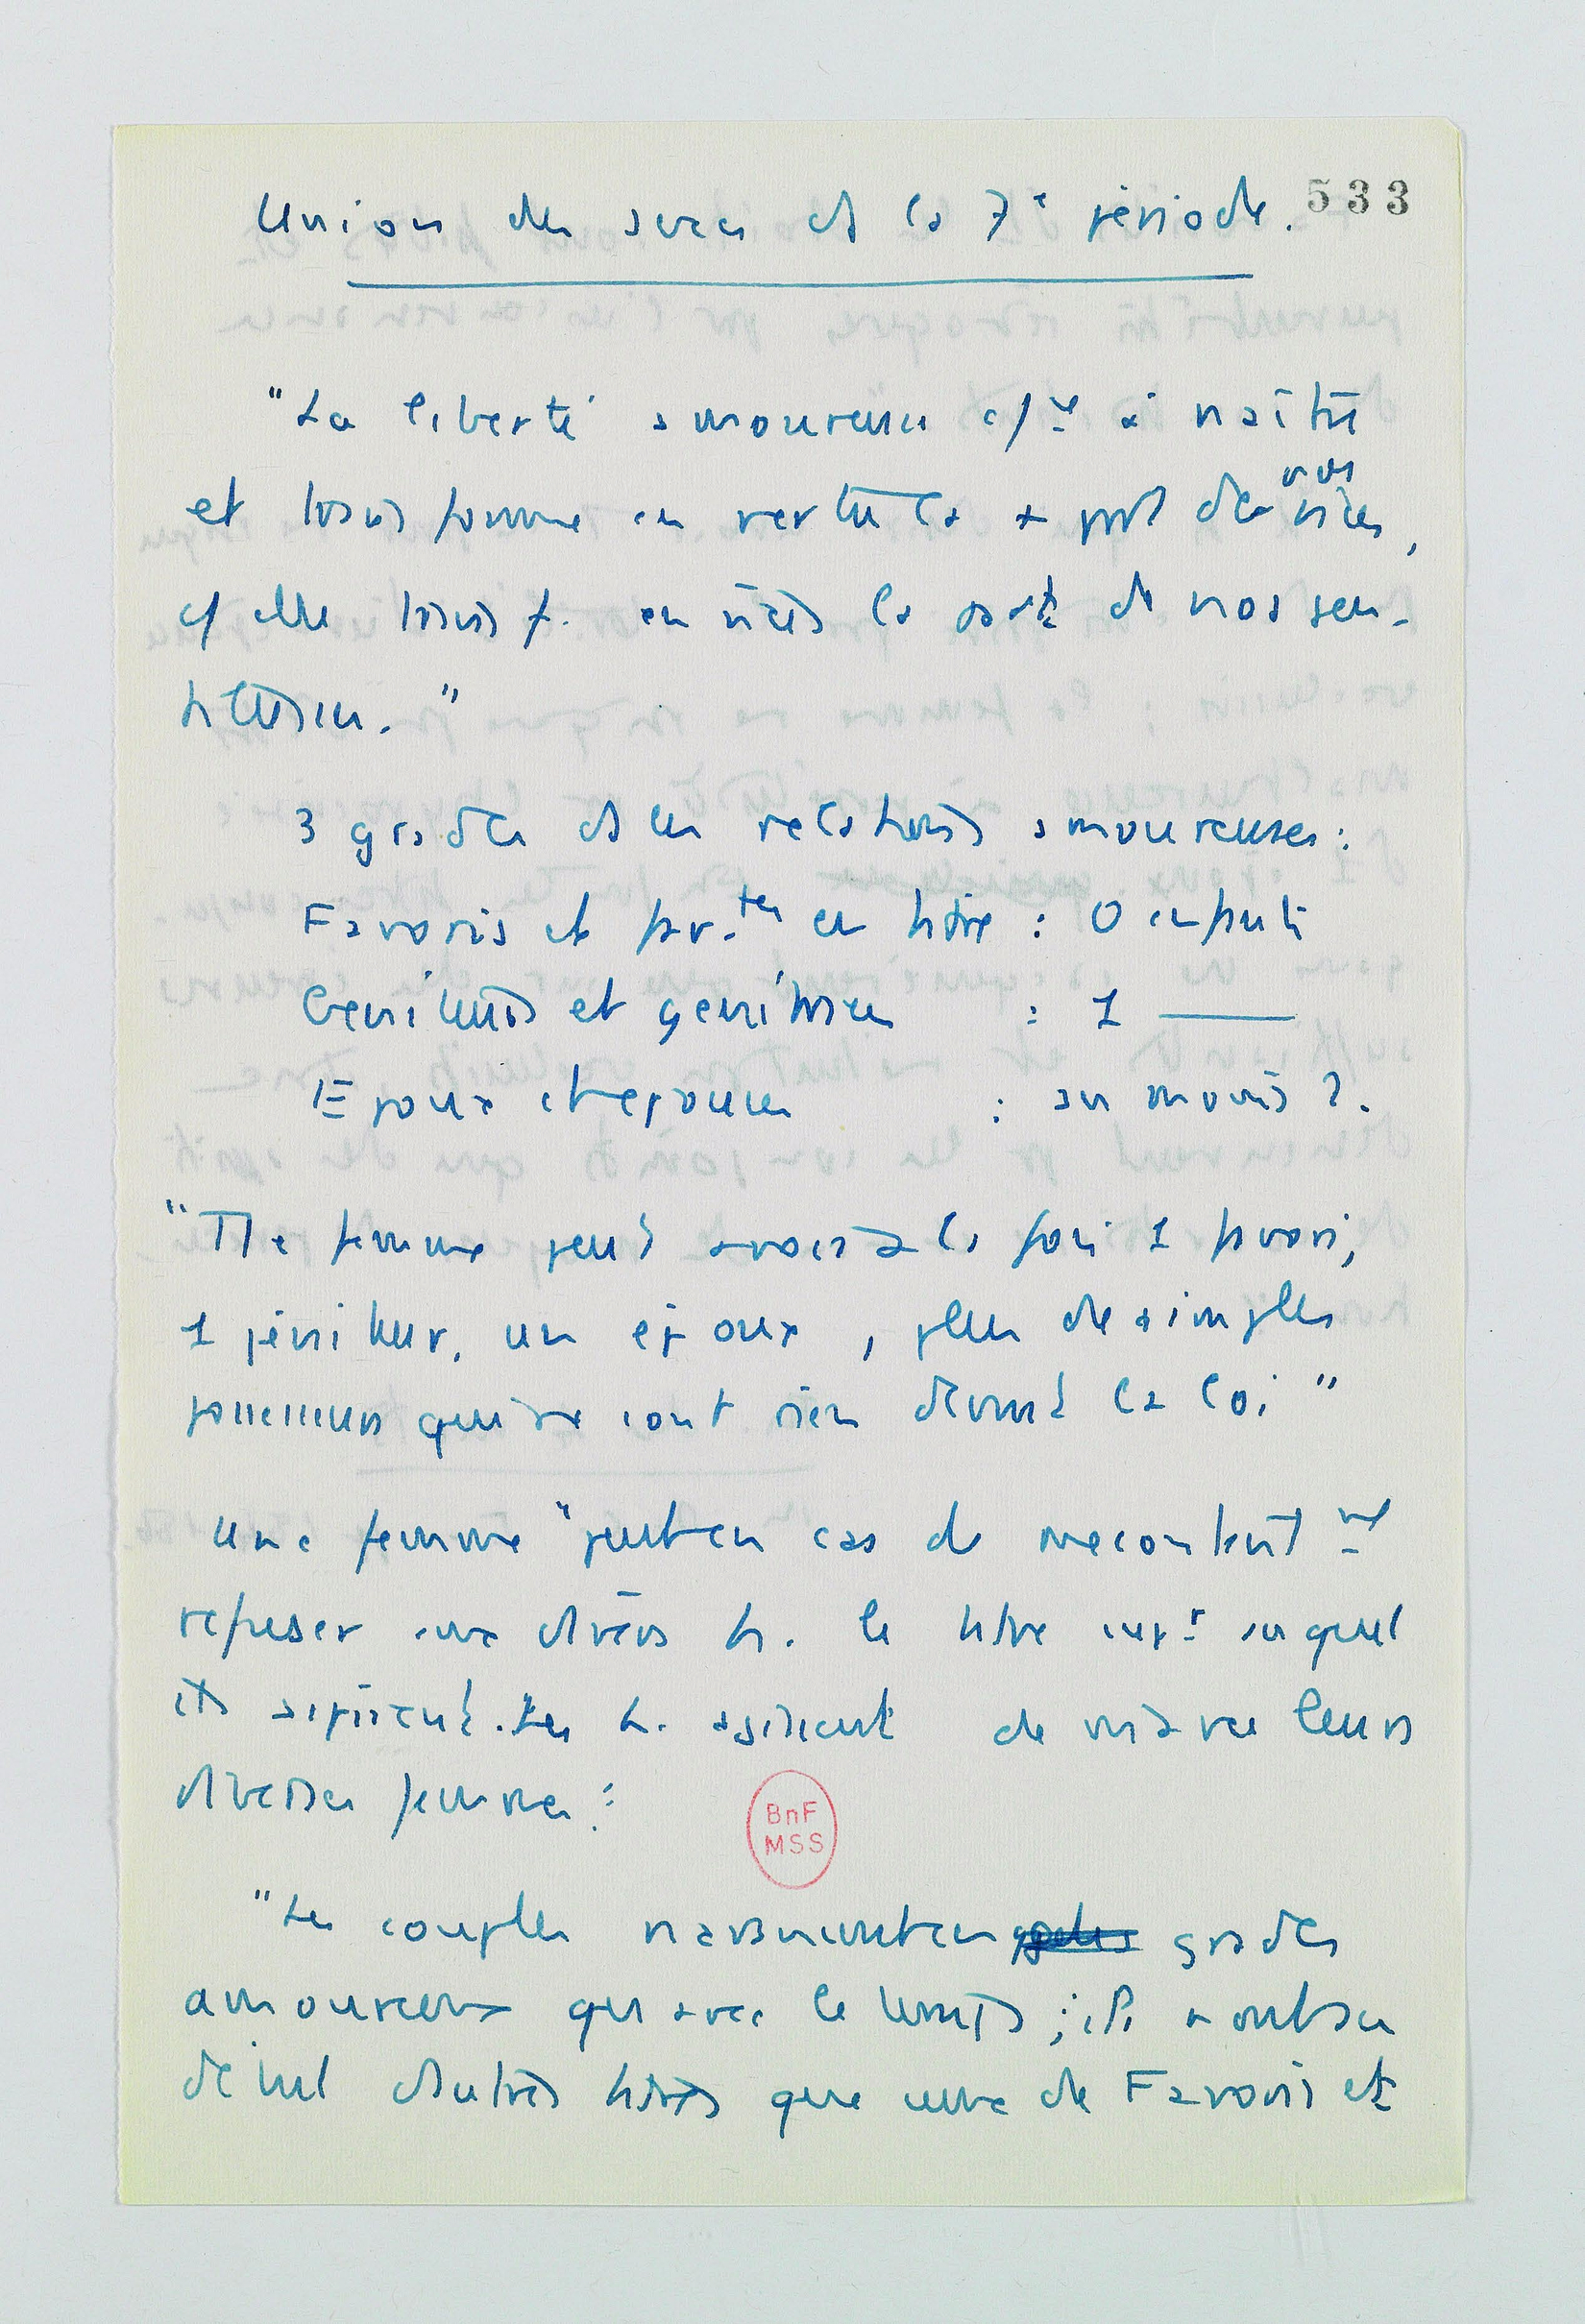 533
Union des sexes ds la 7e période.
"La liberté amoureuse c/ce à naître
et transforme en vertus la + part de nos vices,
c/ elle transf. en vices la part de nos gen-
tillesses."
3 grades ds les relations amoureuses :
Favoris et fav.tes en titre : 0 enfants
Géniteurs et génitrices : 1 ———
Epoux et epouses : au moins 2.
"Tte femme peut avoir à la fois 1 favori,
1 géniteur, un époux, plus de simples
possesseurs qui ne sont rien devant la loi"
Une femme "peut en cas de mecontent-
refuser aux divers h. le titre auquel
ils aspirent. Les h. agissent de même avec leurs
diverses femmes :
BnF
MSS
"Les couples n'avancent en grades
amoureux qu'avec le temps ; ils n'ont au
début d'autres titres que ceux de Favoris et